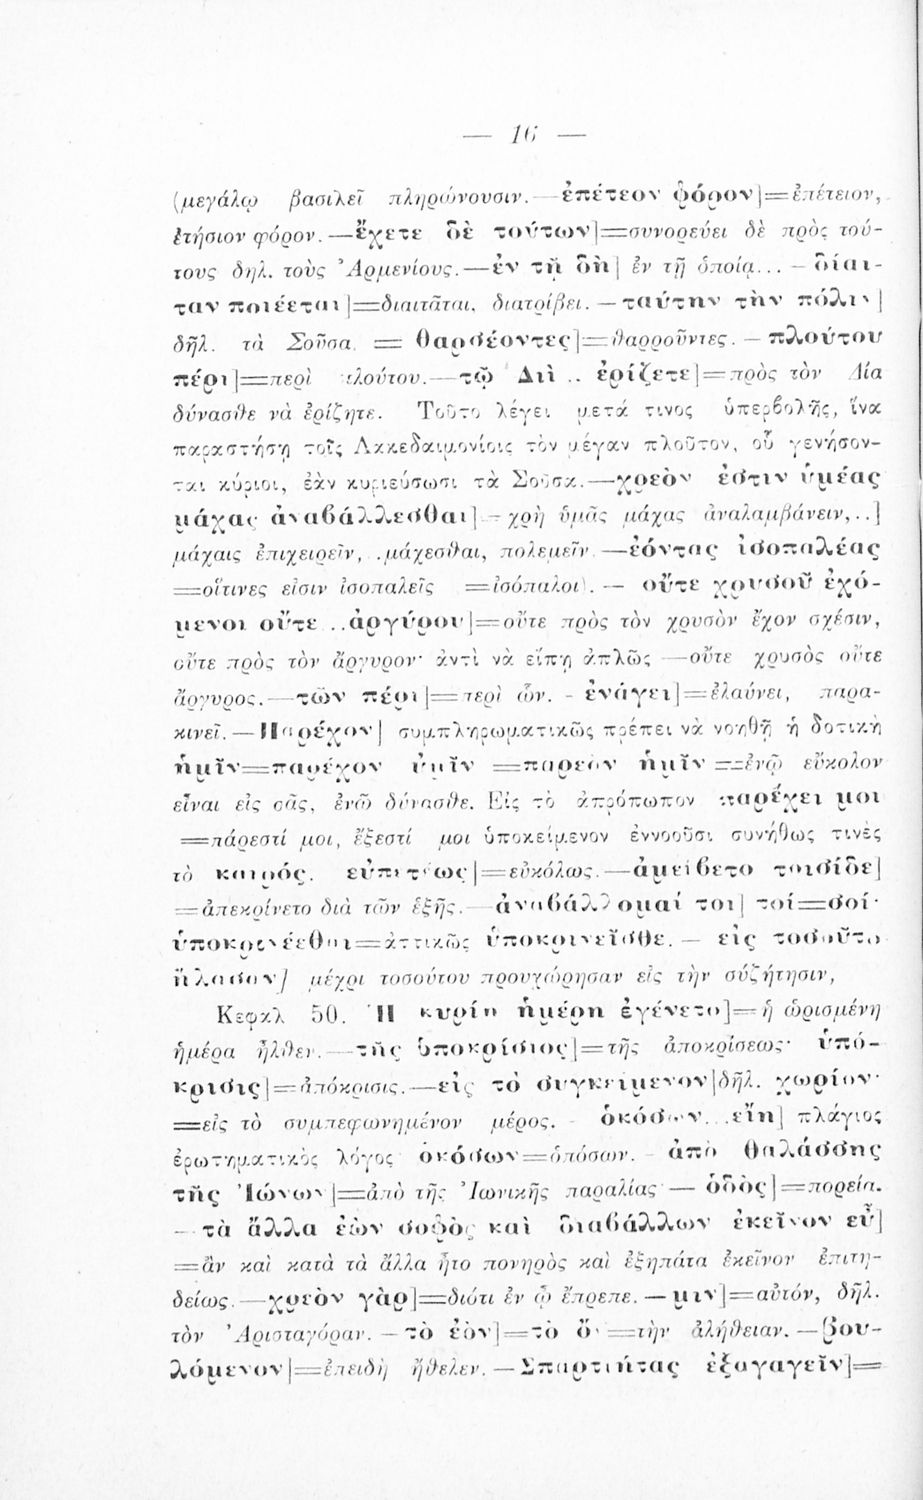 — 16 —
(μεγάλῳ βασιλεῖ πληρώνουσιν.—ἐπέτεον φόρον]=ἐπέτειον,
ἐτήσιον φόρον.—ἔχετε δὲ τούτων]=συνορεύει δὲ πρὸς τού-
τους δηλ. τοὺς Ἀρμενίους.—ἐν τῇ δὴ] ἐν τῇ ὁποίᾳ...—δίαι-
ταν ποιέεται]=διαιτᾶται, διατρίβει.—ταύτην τὴν πόλιν]
δῆλ. τὰ Σοῦσα = θαρσέοντες]=θαρροῦντες.—πλούτου
πέρι]=περὶ πλούτου.—τῷ Διὶ .. ἐρίζετε]=πρὸς τὸν Δία
δύνασθε νὰ ἐρίζητε. Τοῦτο λέγει μετά τινος ὑπερβολῆς, ἵνα
παραστήσῃ τοῖς Λακεδαιμονίοις τὸν μέγαν πλοῦτον, οὗ γενήσον-
ται κύριοι, ἐὰν κυριεύσωσι τὰ Σοῦσα.—χρεὸν ἐστιν ὑμέας
μάχας ἀναβάλλεσθαι]=χρὴ ὑμᾶς μάχας ἀναλαμβάνειν,..]
μάχαις ἐπιχειρεῖν, .μάχεσθαι, πολεμεῖν.—ἐόντας ἰσοπαλέας
=οἵτινες εἰσιν ἰσοπαλεῖς =ἰσόπαλοι).— οὔτε χρυσοῦ ἐχό-
μενοι οὔτε ..ἀργύρου]=οὔτε πρὸς τὸν χρυσὸν ἔχον σχέσιν,
οὔτε πρὸς τὸν ἄργυρον· ἀντὶ νὰ εἴπῃ ἁπλῶς —οὔτε χρυσὸς οὔτε
ἄργυρος.—τῶν πέρι]=περὶ ὧν. - ἐνάγει]=ἐλαύνει, παρα-
κινεῖ.—Παρέχον] συμπληρωματικῶς πρέπει νὰ νοηθῇ ἡ δοτικὴ
ἡμῖν=παρέχον ὑμῖν =παρεὸν ἡμῖν =ἐνῷ εὔκολον
εἶναι εἰς σᾶς, ἐνῶ δύνασθε. Εἰς τὸ ἀπρόπωπον παρέχει μοι
=πάρεστί μοι, ἔξεστί μοι ὑποκείμενον ἐννοοῦσι συνήθως τινὲς
τὸ καιρός. εὐπετέως]=εὐκόλως.—ἀμείβετο τοισίδε]
=ἀπεκρίνετο διὰ τῶν ἑξῆς.—ἀναβάλλομαί τοι] τοί=σοί·
ὑποκρινέεσθαι=ἀττικῶς ὑποκρινεῖσθε.— εἰς τοσοῦτο
ἤλασαν] μέχρι τοσούτου προυχώρησαν εἰς τὴν σύζήτησιν,
Κεφαλ 50. Ἡ κυρίη ἡμέρη ἐγένετο]=ἡ ὡρισμένη
ἡμέρα ἦλθεν.—τῆς ὑποκρίσιος]=τῆς ἀποκρίσεως· ὑπό-
κρισις]=ἀπόκρισις.—εἰς τὸ συγκείμενον]δῆλ. χωρίον·
=εἰς τὸ συμπεφωνημένον μέρος. - ὁκόσων...εἴη] πλάγιος
ἐρωτηματικὸς λόγος ὁκόσων=ὁπόσων. - ἀπὸ θαλάσσης
τῆς Ἰώνων]=ἀπὸ τῆς Ἰωνικῆς παραλίας — ὁδὸς]=πορεία.
— τὰ ἄλλα ἐὼν σοφὸς καὶ διαβάλλων ἐκεῖνον εὖ]
=ἂν καὶ κατὰ τὰ ἄλλα ἦτο πονηρὸς καὶ ἐξηπάτα ἐκεῖνον ἐπιτη-
δείως.—χρεὸν γὰρ]=διότι ἐν ᾧ ἔπρεπε.—μιν]=αὐτόν, δῆλ.
τὸν Ἀρισταγόραν.—τὸ ἐὸν]=τὸ ὂν =τὴν ἀλήθειαν.—βου-
λόμενον]=ἐπειδὴ ἤθελεν.—Σπαρτιήτας ἐξαγαγεῖν]=